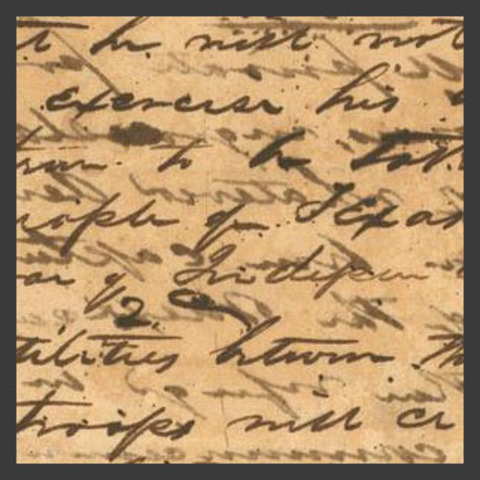 t he will not
exercise his
to be
eople of Texas
ar of Indepen
2
tilities between th
troops will ce